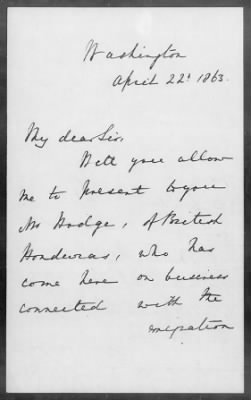 Washington
April 22d 1863.
My dear Sir,
Will you allow
me to present to you
Mr Hodge, of British
Honduras, who has
come here on business
connected with the
emigration